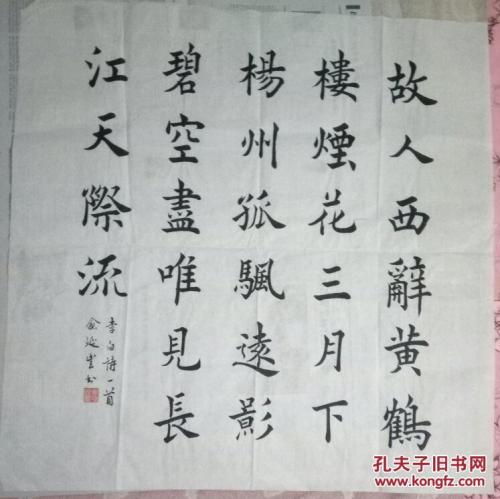 故人西辭黄鶴
樓煙花三月下
楊州孤颿遠影
碧空盡唯見長
江天際流
李白詩一首
孔夫子旧书网
www.kongfz.com